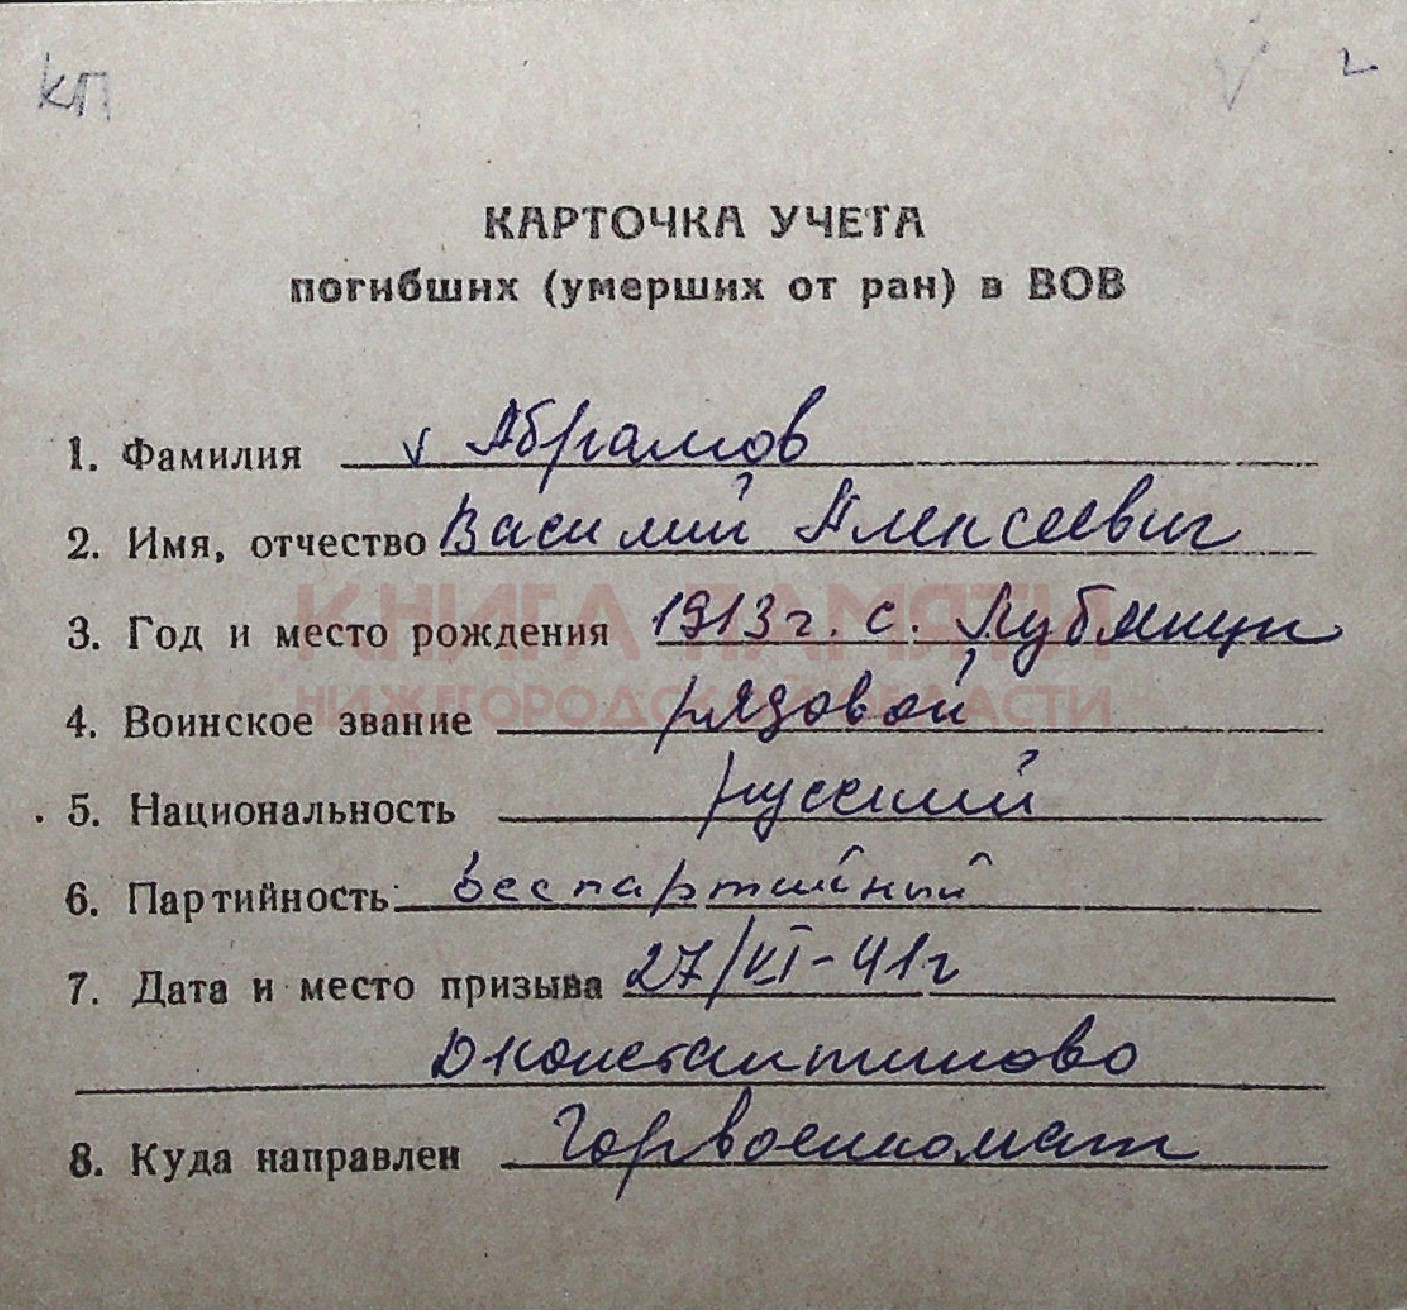 КП V
КАРТОЧКА УЧЕТА
погибших (умерших от ран) в ВОВ
1. Фамилия v Абрамов
2. Имя, отчество Василий Алексеевич
КНИГА ПАМЯТИ
3. Год и место рождения 1913 г. с. Лубянцы
НИЖЕГОРОДСКОЙ ОБЛАСТИ
4. Воинское звание рядовой
5. Национальность русский
6. Партийность беспартийный
7. Дата и место призыва 27/VI-41г
Дконстантиново
8. Куда направлен Горвоенкомат